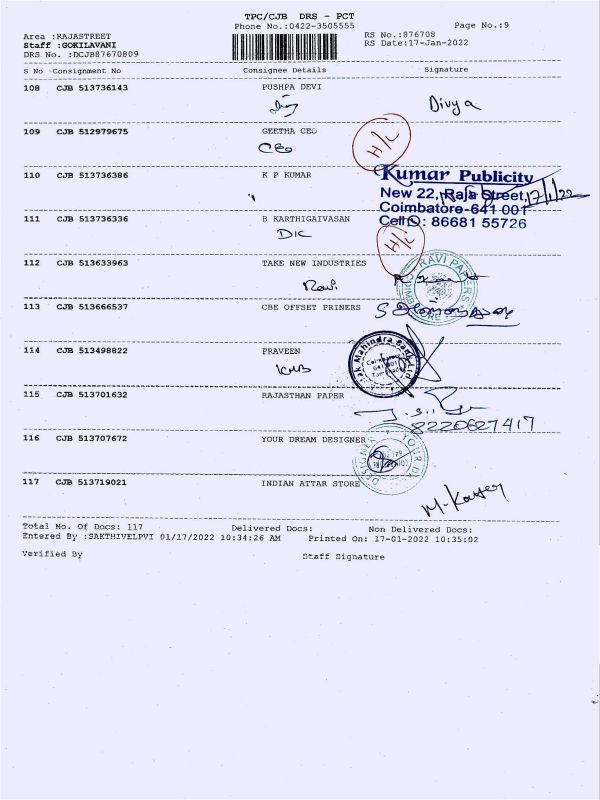 TPC/CJB DRS - PCT
Phone No.:0422-3505555 Page No.:9
Area :RAJASTREET RS No.:876708
Staff :GOKILAVANI RS Date:17-Jan-2022
DRS No. :DCJB87670809
S No Consignment No Consignee Details Signature
108 CJB 513736143 PUSHPA DEVI
Divya
109 CJB 512979675 GEETHA CEO
CEO H/L
110 CJB 513736386 K P KUMAR
Kumar Publicity
New 22, Raja Street, 17/1/22
Coimbatore-641 001
Cell : 86681 55726
111 CJB 513736336 B KARTHIGAIVASAN
DIC H/L
112 CJB 513633963 TAKE NEW INDUSTRIES
Ravi RAVI PAPERS
113 CJB 513666537 CBE OFFSET PRINERS
114 CJB 513498822 PRAVEEN
KMB Mahindra Bank Ltd
115 CJB 513701632 RAJASTHAN PAPER
8220627417
116 CJB 513707672 YOUR DREAM DESIGNER
117 CJB 513719021 INDIAN ATTAR STORE
Total No. Of Docs: 117 Delivered Docs: Non Delivered Docs:
Entered By :SAKTHIVELPVI 01/17/2022 10:34:26 AM Printed On: 17-01-2022 10:35:02
Verified By Staff Signature